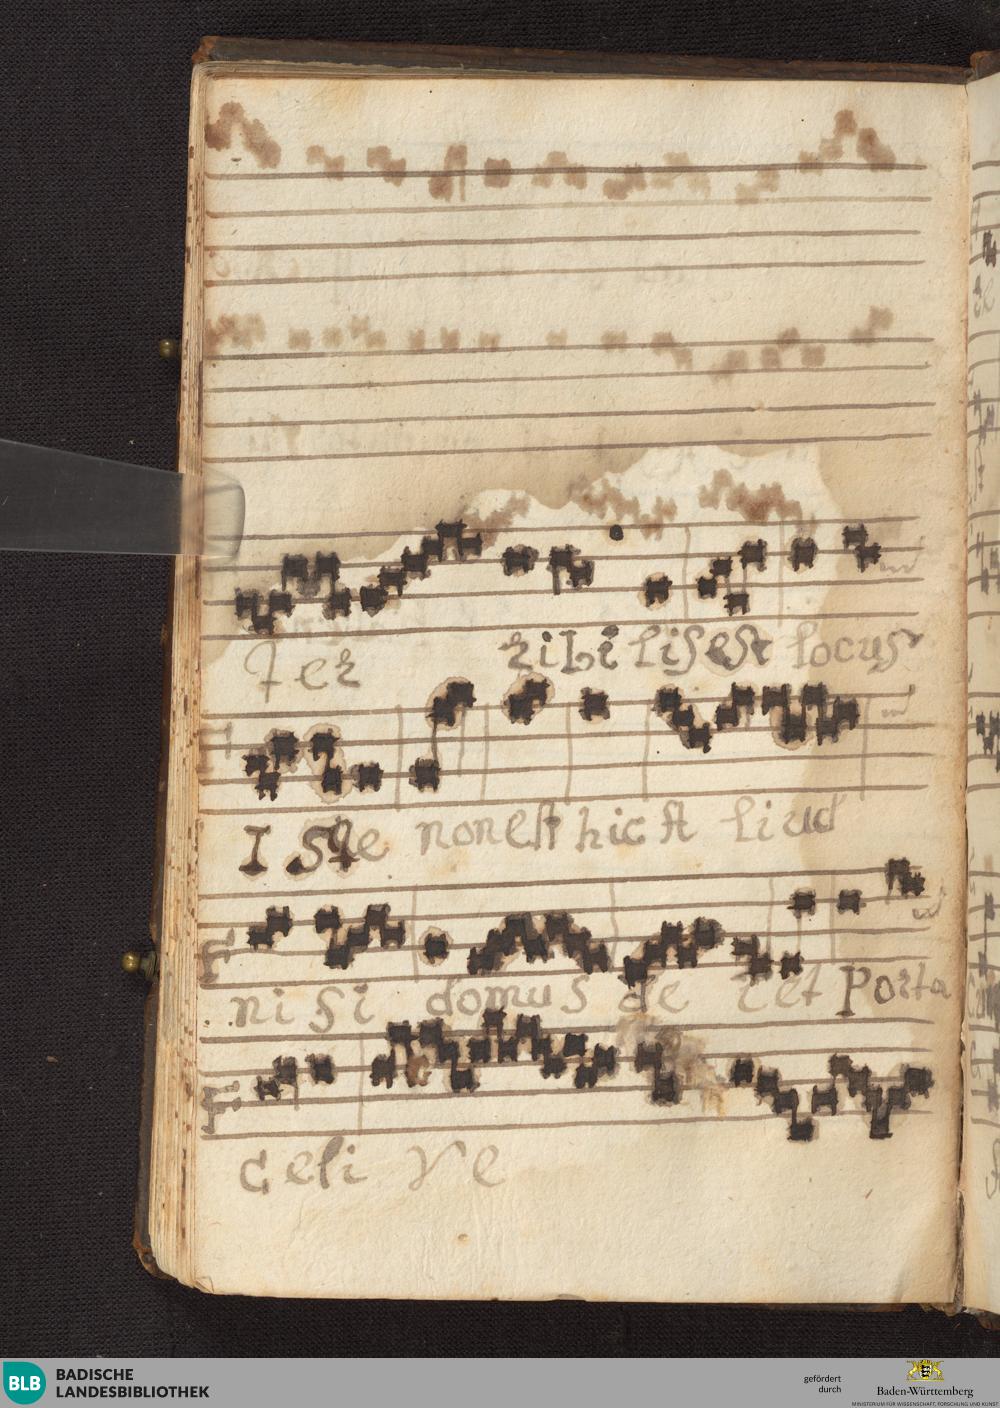 Ter ribi lis est locus
I Ste non est hic A liud
ni Si domus de i et Porta
Celi Ve
BLB
BADISCHE
LANDESBIBLIOTHEK
gefördert
durch
Baden-Württemberg
MINISTERIUM FÜR WISSENSCHAFT, FORSCHUNG UND KUNST